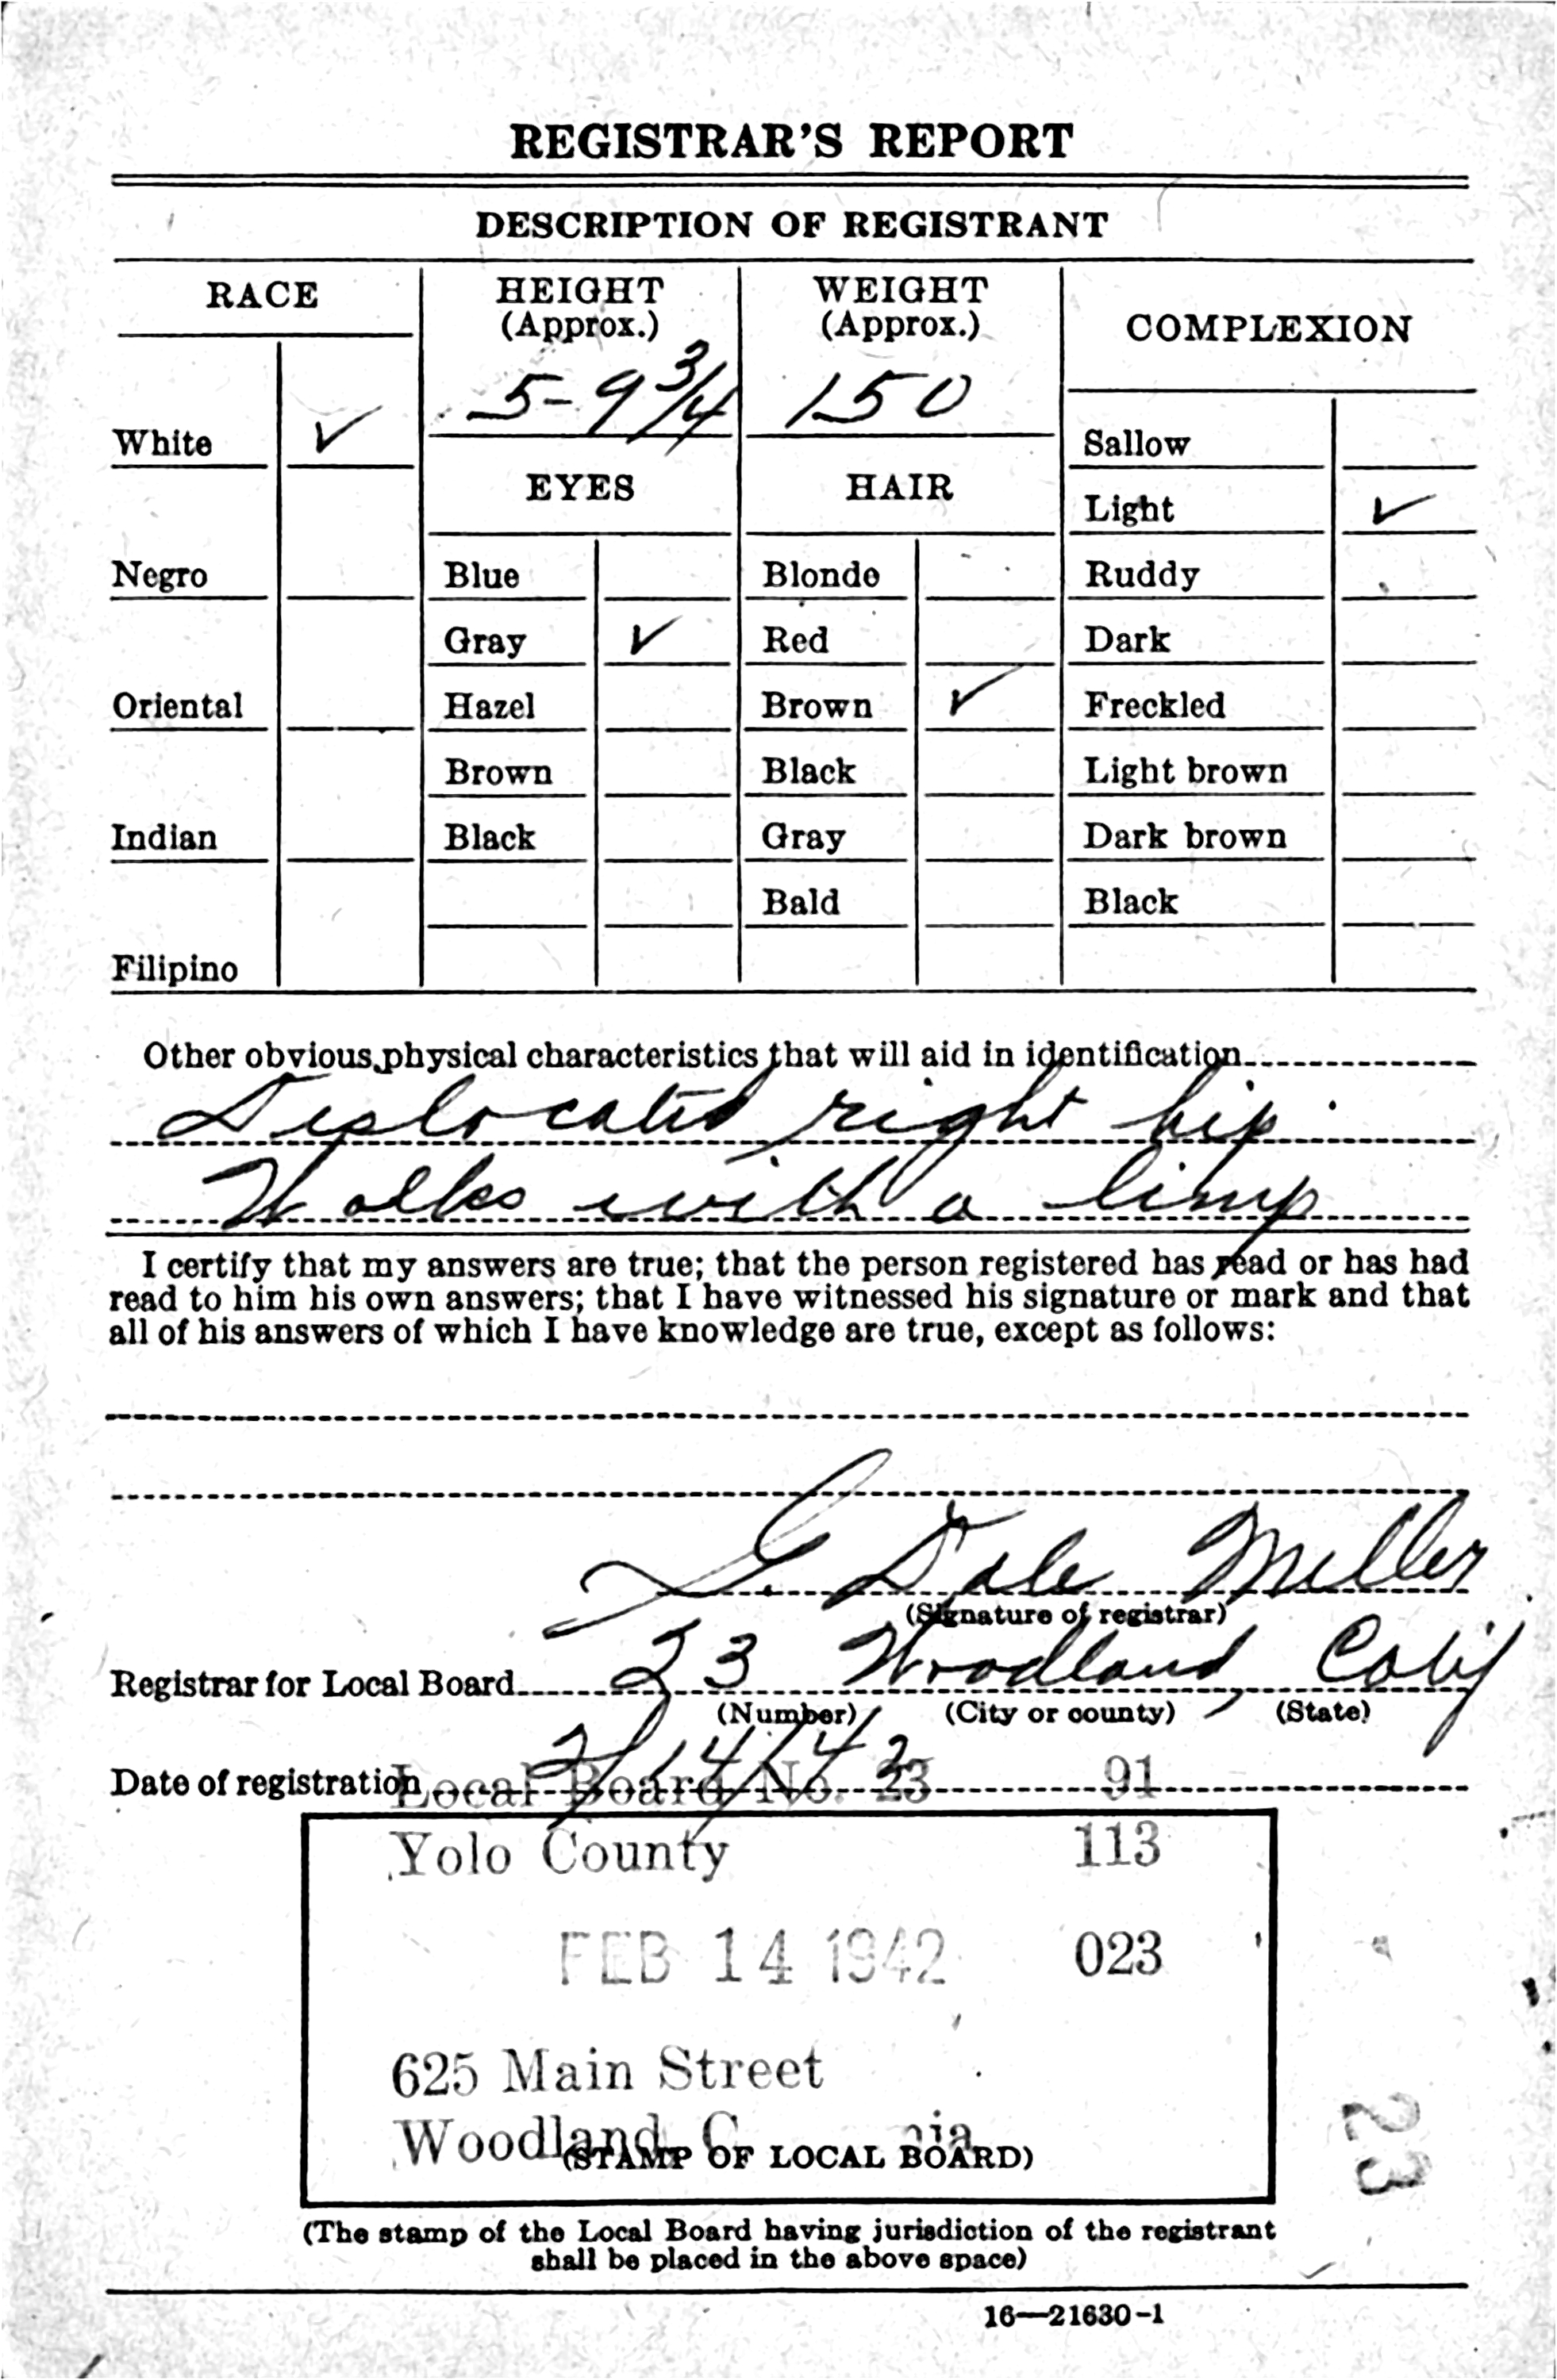 REGISTRAR'S REPORT
DESCRIPTION OF REGISTRANT
RACE
White ✓
Negro
Oriental
Indian
Filipino
HEIGHT
(Approx.)
5-9 3/4
EYES
Blue
Gray ✓
Hazel
Brown
Black
WEIGHT
(Approx.)
150
HAIR
Blonde
Red
Brown ✓
Black
Gray
Bald
COMPLEXION
Sallow
Light ✓
Ruddy
Dark
Freckled
Light brown
Dark brown
Black
Other obvious physical characteristics that will aid in identification
Dislocated right hip.
Walks with a limp
I certify that my answers are true; that the person registered has read or has had
read to him his own answers; that I have witnessed his signature or mark and that
all of his answers of which I have knowledge are true, except as follows:
Dale Miller
(Signature of registrar)
Registrar for Local Board 23 Woodland, Calif
(Number) (City or county) (State)
Date of registration 2/14/42
Local Board No. 23 91
Yolo County 113
FEB 14 1942 023
625 Main Street
Woodland,
(STAMP OF LOCAL BOARD)
23
(The stamp of the Local Board having jurisdiction of the registrant
shall be placed in the above space)
16—21630-1